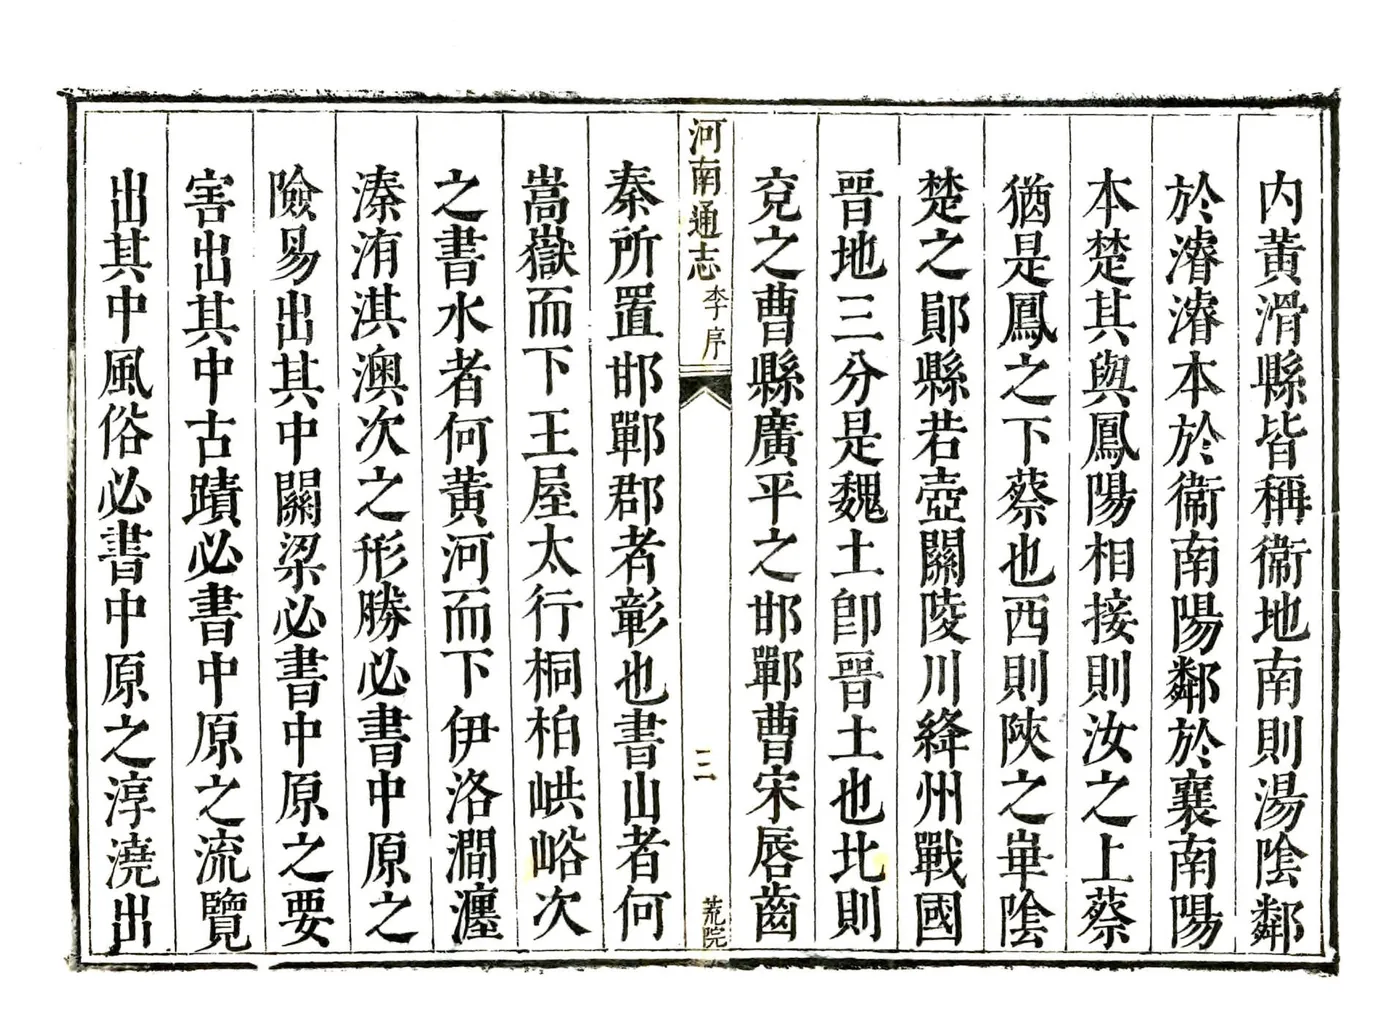 内黃滑縣皆稱衞地南則湯陰鄰
於濬濬本於衞南陽鄰於襄南陽
本楚其與鳳陽相接則汝之上蔡
猶是鳳之下蔡也西則陝之崋陰
楚之鄖縣若壺關陵川絳州戰國
晉地三分是魏土卽晉土也北則
兗之曹縣廣平之邯鄲曹宋唇齒
河南通志 李序 三
秦所置邯鄲郡者彰也書山者何
嵩嶽而下王屋太行桐柏峪次
之書水者何黃河而下伊洛澗瀍
溱洧淇澳次之形勝必書中原之
險易出其中關梁必書中原之要
害出其中古蹟必書中原之流覽
出其中風俗必書中原之淳澆出